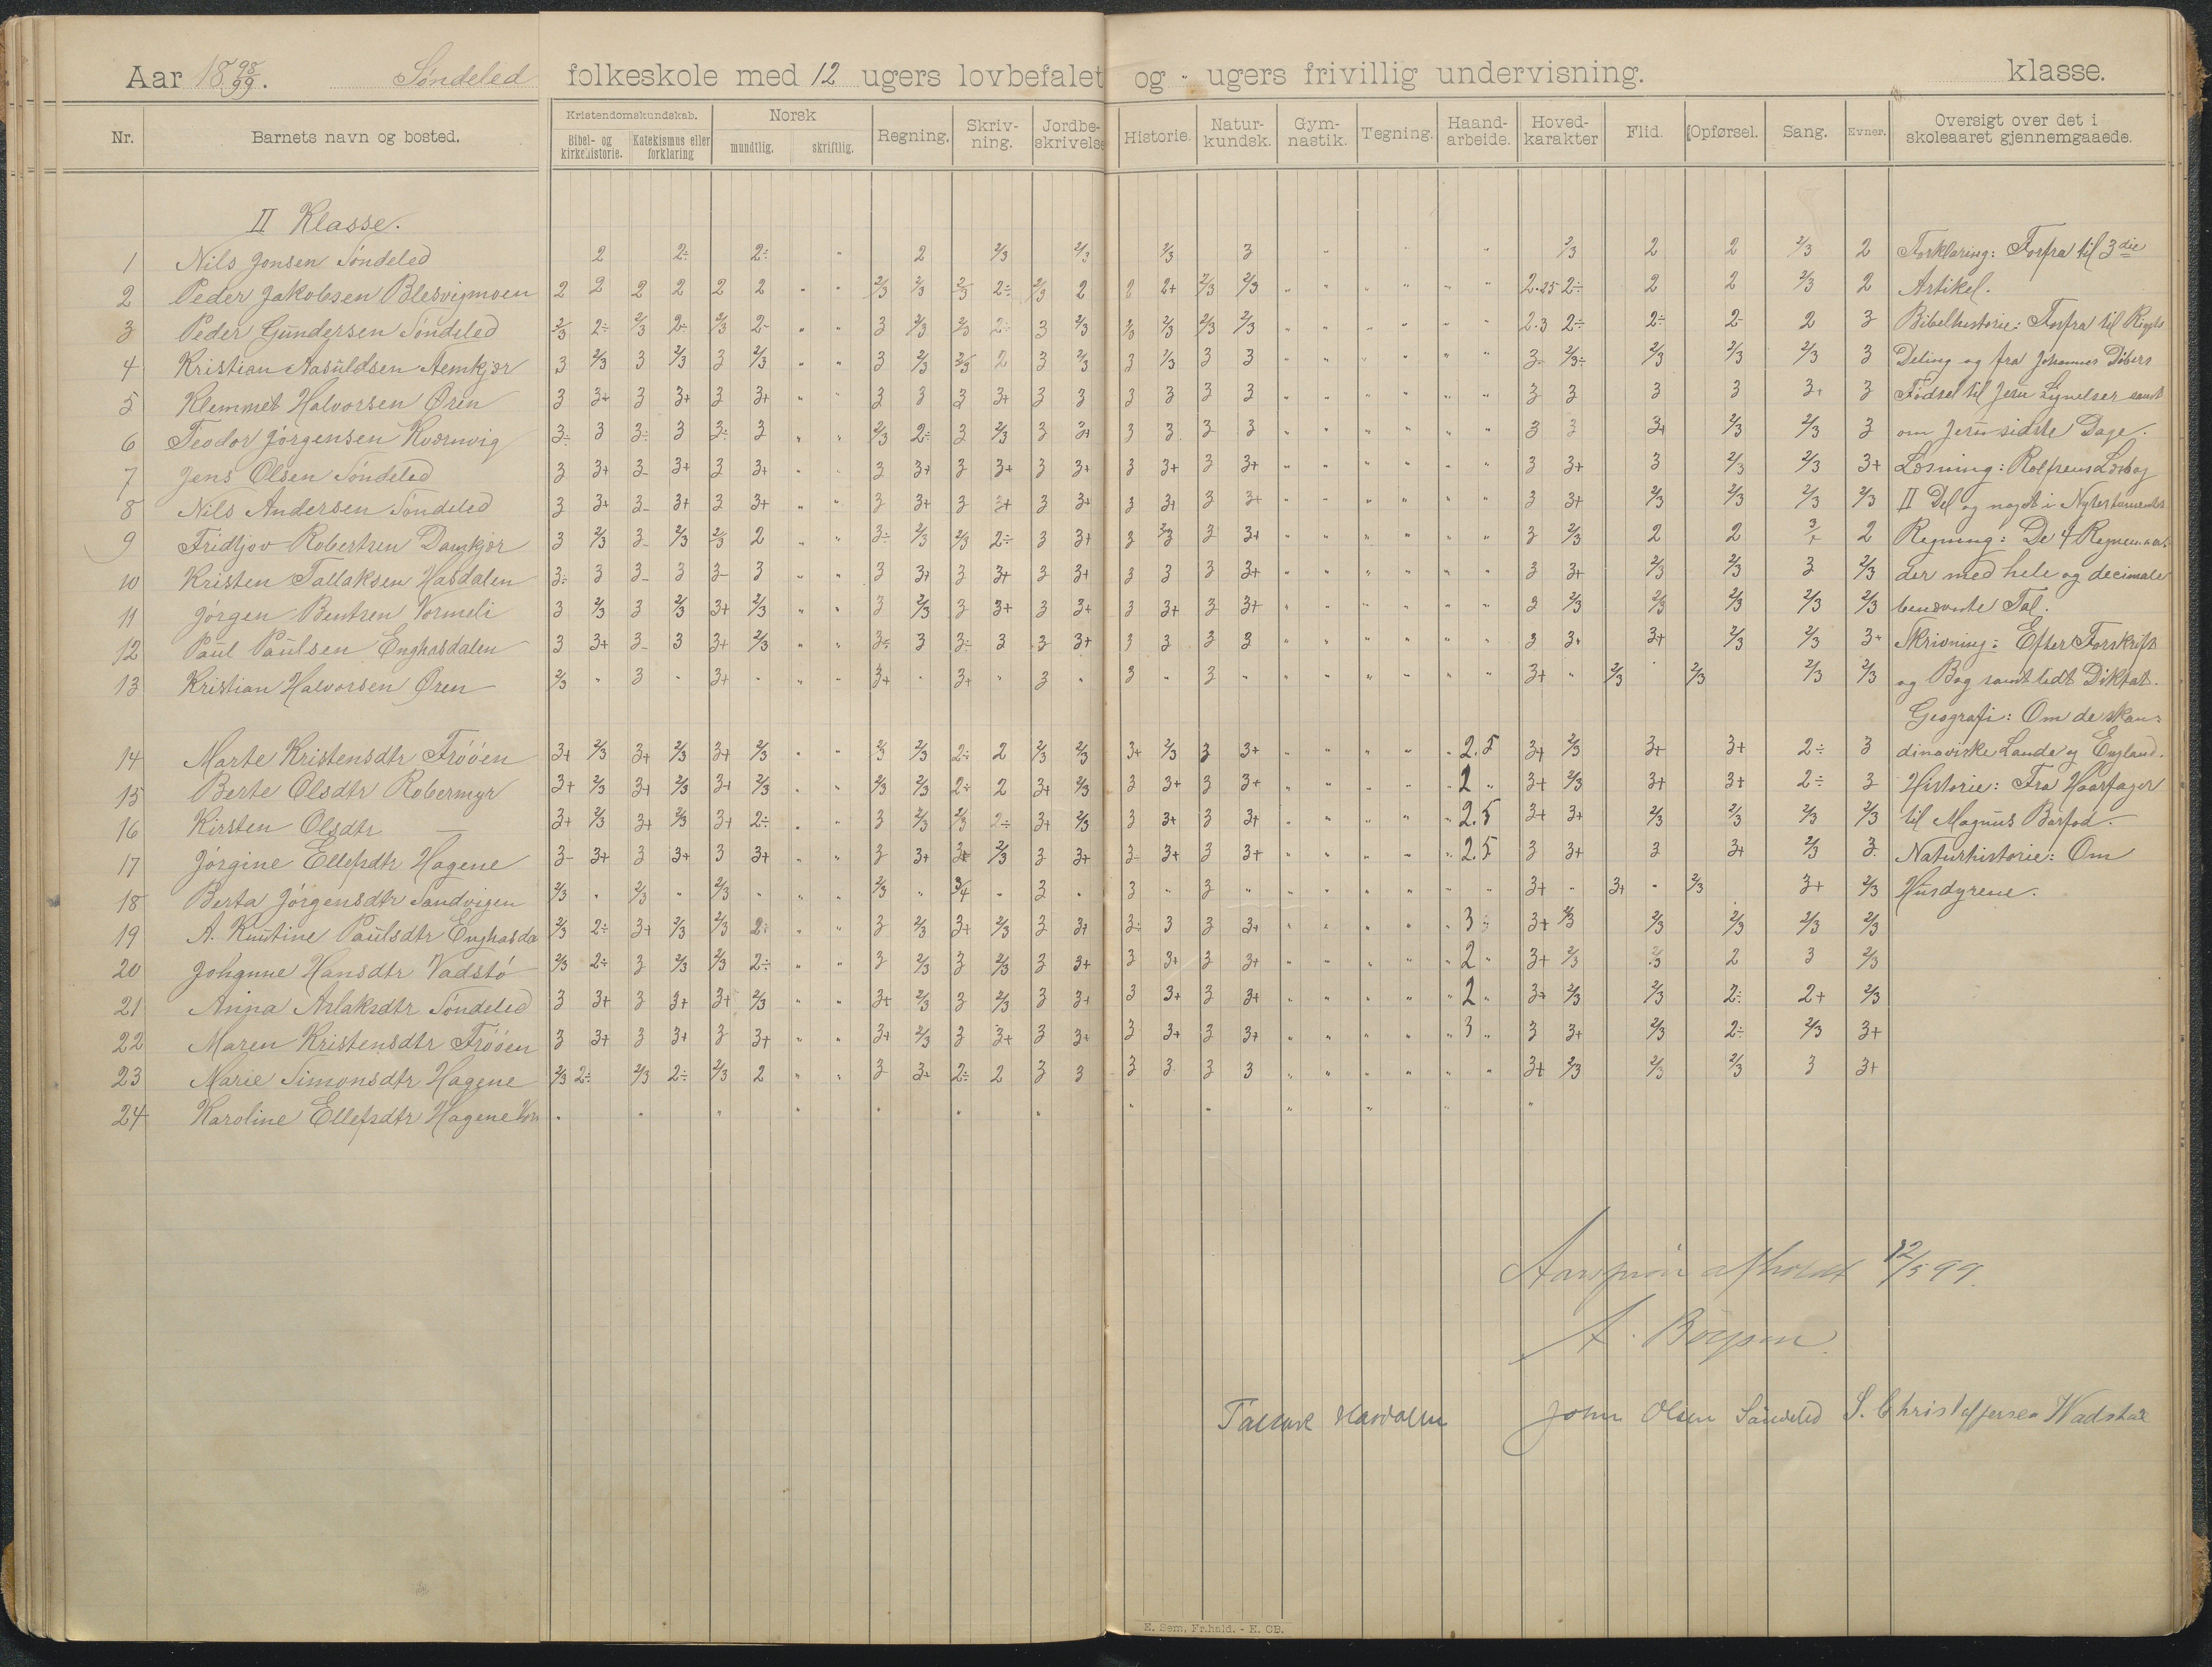 Aar 18 98/99. Søndeled folkeskole med 12 ugers lovbefalet og " ugers frivillig undervisning. klasse.
Nr. Barnets navn og bosted. Kristendomskundskab. Bibel- og kirkehistorie. Katekismus eller forklaring Norsk mundtlig. skriftlig. Regning. Skriv-ning. Jordbe-skrivelse Historie. Natur-kundsk. Gym-nastik. Tegning. Haand-arbeide. Hoved-karakter Flid. Opførsel. Sang. Evner. Oversigt over det i skoleaaret gjennemgaaede.
II Klasse.
1 Nils Jonsen Søndeled 2 2÷ 2÷ " 2 2/3 2/3 2/3 3 " " " 2/3 2 2 2/3 2 Forklaring: Forfra til 3die
2 Peder Jakobsen Blesvigmoen 2 2 2 2 2 2 " " 2/3 2/3 2/3 2÷ 2/3 2 2 2+ 2/3 2/3 " " " " " " 2.25 2÷ 2 2 2/3 2 Artikel.
3 Peder Gundersen Søndeled 2/3 2÷ 2/3 2÷ 2/3 2- " " 3 2/3 2/3 2÷ 3 2/3 2/3 2/3 2/3 2/3 " " " " " " 2.3 2÷ 2÷ 2- 2 3 Bibelhistorie: Forfra til Rigets
4 Kristian Aasuldsen Aemkjær 3 2/3 3 2/3 3 2/3 " " 3 2/3 2/3 2 3 2/3 3 2/3 3 3 " " " " " " 3- 2/3÷ 2/3 2/3 2/3 3 Deling og fra Johannes Døbers
5 Klemmet Halvorsen Øren 3 3+ 3 3+ 3 3+ " " 3 3 3 3+ 3 3 3 3 3 3 " " " " " " 3 3 3 3 3+ 3 Fødsel til Jesu Lignelser samt
6 Teodor Jørgensen Kværnvig 3÷ 3 3÷ 3 3÷ 3 " " 2/3 2÷ 3 2/3 3 3+ 3 3 3 3 " " " " " " 3 3 3+ 2/3 2/3 3 om Jesu sidste Dage.
7 Jens Olsen Søndeled 3 3+ 3- 3+ 3 3+ " " 3 3+ 3 3+ 3 3+ 3 3+ 3 3+ " " " " " " 3 3+ 3 2/3 2/3 3+ Læsning: Rolfsens Læsebog
8 Nils Andersen Søndeled 3 3+ 3- 3+ 3 3+ " " 3 3+ 3 3+ 3 3+ 3 3+ 3 3+ " " " " " " 3 3+ 2/3 2/3 2/3 2/3 II Del og noget i Nytestamentet
9 Fridtjov Robertsen Damkjær 3 2/3 3- 2/3 2/3 2 " " 3÷ 2/3 2/3 2÷ 3 3+ 3 2/3 3 3+ " " " " " " 3 2/3 2 2 3+ 2 Regning: De 4 Regnemaa-
10 Kristen Tallaksen Hasdalen 3÷ 3 3- 3 3- 3 " " 3 3+ 3 3+ 3 3+ 3 3 3 3+ " " " " " " 3 3+ 2/3 2/3 3 2/3 der med hele og decimale
11 Jørgen Bentsen Vormeli 3 2/3 3 2/3 3+ 2/3 " " 3 2/3 3 3+ 3 3+ 3 3+ 3 3+ " " " " " " 3 2/3 2/3 2/3 2/3 2/3 benævnte Tal.
12 Paul Paulsen Enghasdalen 3 3+ 3- 3 3+ 2/3 " " 3÷ 3 3÷ 3 3 3+ 3 3 3 3 " " " " " " 3 3+ 3+ 2/3 2/3 3+ Skrivning: Efter Forskrift
13 Kristian Halvorsen Øren 2/3 " 3 " 3+ " " " 3+ " 3+ " 3 " 3 " 3 " " " " " " " 3+ " 2/3 2/3 2/3 2/3 og Bog samt lidt Diktat.
Geografi: Om de skan-
14 Marte Kristensdtr Frøøen 3+ 2/3 3+ 2/3 3+ 2/3 " " 2/3 2/3 2÷ 2 2/3 2/3 3+ 2/3 3 3+ " " " " " 2.5 3+ 2/3 3+ 3+ 2÷ 3 dinaviske Lande og England.
15 Berte Olsdtr Robermyr 3+ 2/3 3+ 2/3 3+ 2/3 " " 2/3 2/3 2÷ 2 3+ 2/3 3 3+ 3 3+ " " " " " 2 " 3+ 2/3 3+ 3+ 2÷ 3 Historie: Fra Haarfager
16 Kirsten Olsdtr — 3+ 2/3 3+ 2/3 3+ 2÷ " " 3 2/3 2/3 2÷ 3+ 2/3 3 3+ 3 3+ " " " " " 2.5 3+ 3+ 2/3 2/3 2/3 2/3 til Magnus Barfod.
17 Jørgine Ellefsdtr Hagene 3- 3+ 3 3+ 3 3+ " " 3 3+ 3+ 2/3 3 3+ 3- 3+ 3 3+ " " " " " 2.5 3 3+ 3 3+ 2/3 3 Naturhistorie: Om
18 Berta Jørgensdtr Sandvigen 2/3 " 2/3 " 2/3 " " " 2/3 " 3/4 " 3 " 3 " 3 " " " " " " " 3+ " 3+ " 2/3 3+ 2/3 Husdyrene.
19 A. Knutine Paulsdtr Enghasda 2/3 2÷ 3+ 2/3 2/3 2÷ " " 3 2/3 3+ 2/3 3 3+ 3÷ 3 3 3+ " " " " " 3 " 3+ 2/3 2/3 2/3 2/3 2/3
20 Johanne Hansdtr Vadstø 2/3 2÷ 3 2/3 2/3 2÷ " " 3 2/3 3 2/3 3 3+ 3 3+ 3 3+ " " " " " 2 " 3+ 2/3 2/3 2 3 2/3
21 Anna Aslaksdtr Søndeled 3 3+ 3 3+ 3+ 2/3 " " 3+ 2/3 3 2/3 3 3+ 3 3+ 3 3+ " " " " " 2 " 3+ 2/3 2/3 2÷ 2+ 2/3
22 Maren Kristensdtr Frøøen 3 3+ 3 3+ 3 3+ " " 3+ 2/3 3 3+ 3 3+ 3 3+ 3 3+ " " " " " 3 " 3 3+ 2/3 2÷ 2/3 3+
23 Marie Simonsdtr Hagene 2/3 2÷ 2/3 2÷ 2/3 2 " " 3 3+ 2÷ 2 3 3 3 3 3 3 " " " " " " 3+ 2/3 2/3 2/3 3 3+
24 Karoline Ellefsdtr Hagene " " " " " " " " " " " " "
afholdt 12/5 99.
A.
John Olsen Søndeled S. Christoffersen Wadstøe
E. Sem, Fr.hald. - E. CB.